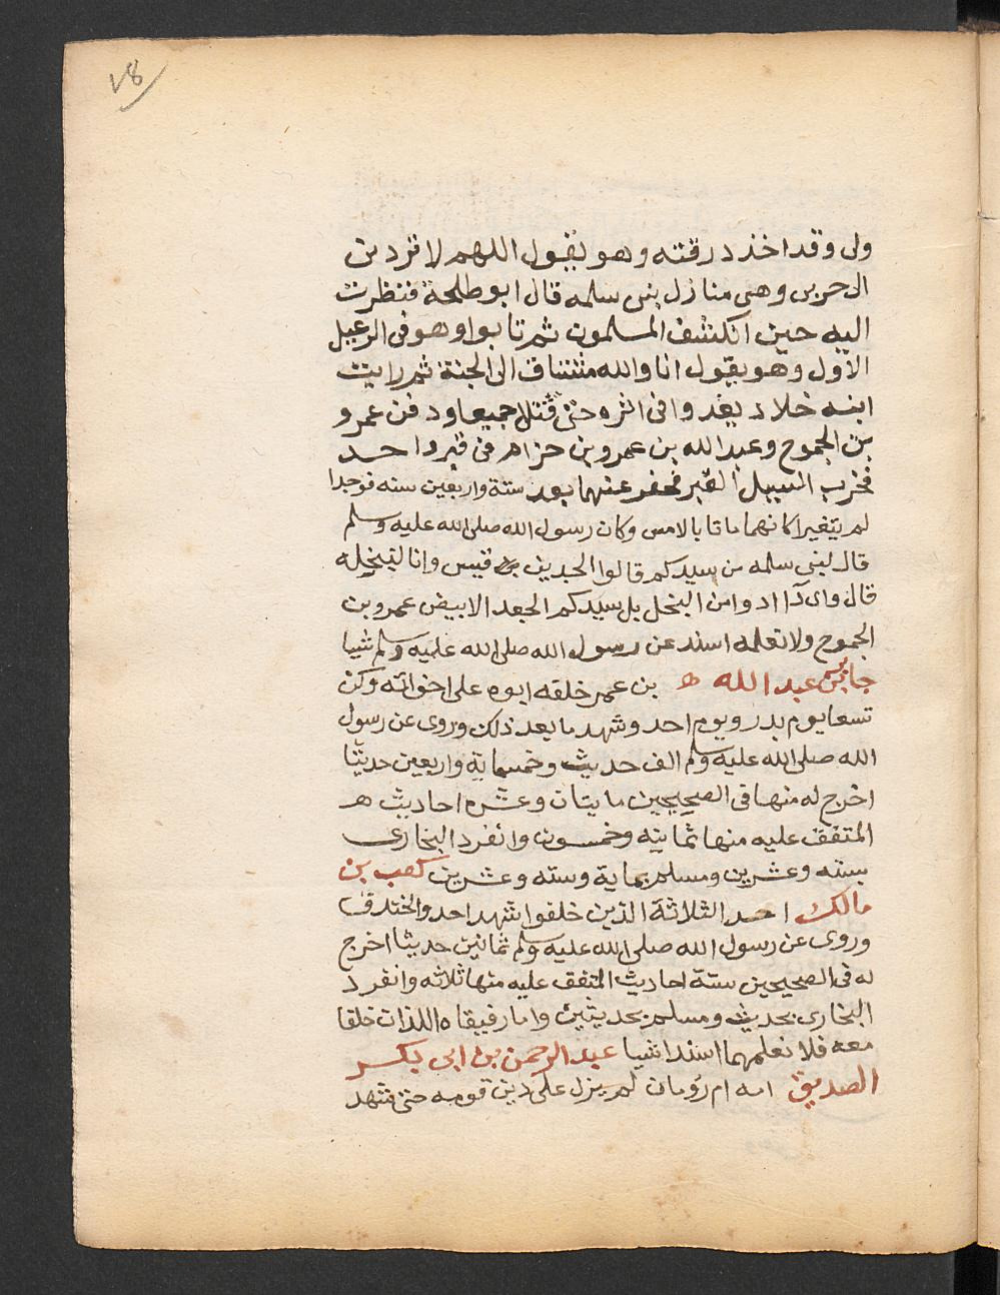 ٧٨
ولى وقد اخذ درقته وهو يقول اللهم لا تردنى
الى حربى وهى منازل بنى سلمه قال ابو طلحة فنظرت
اليه حين انكشف المسلمون ثم تابوا وهو فى الرعيل
الاول وهو يقول انا والله مشتاق الى الجنة ثم رايت
ابنه خلاد يعدوا فى اثره حتى قتلا جميعا ودفن عمرو
بن الجموح وعبد الله بن عمرو بن حزام فى قبر واحد
فخرب السيل القبر فحفر عنهما بعد ستة واربعين سنه فوجدا
لم يتغيرا كانهما ماتا بالامس وكان رسول الله صلى الله عليه وسلم
قال لبنى سلمه من سيدكم قالوا الجد بن قيس وانا لنبخله
قال واى دا ادوا من البخل بل سيدكم الجعد الابيض عمرو بن
الجموح ولا نعلمه اسند عن رسول الله صلى الله عليه وسلم شيا
جابر بن عبد الله ه بن عمر خلفه ابوه على اخواته وكن
تسعا يوم بدر ويوم احد وشهد ما بعد ذلك وروى عن رسول
الله صلى الله عليه وسلم الف حديث وخمسماية واربعين حديثا
اخرج له منها فى الصحيحين مايتان وعشره احاديث ه
المتفق عليه منها ثمانيه وخمسون وانفرد البخارى
بسته وعشرين ومسلم بماية وسته وعشرين كعب بن
مالك احد الثلاثة الذين خلفوا شهد احد والخندق
وروى عن رسول الله صلى الله عليه وسلم ثمانين حديثا اخرج
له فى الصحيحين ستة احاديث المتفق عليه منها ثلاثه وانفرد
البخارى بحديث ومسلم بحديثين واما رفيقاه اللذان خلفا
معه فلا نعلمهما اسندا شيا عبد الرحمن بن ابى بكر
الصديق امه ام رومان لم يزل على دين قومه حتى شهد